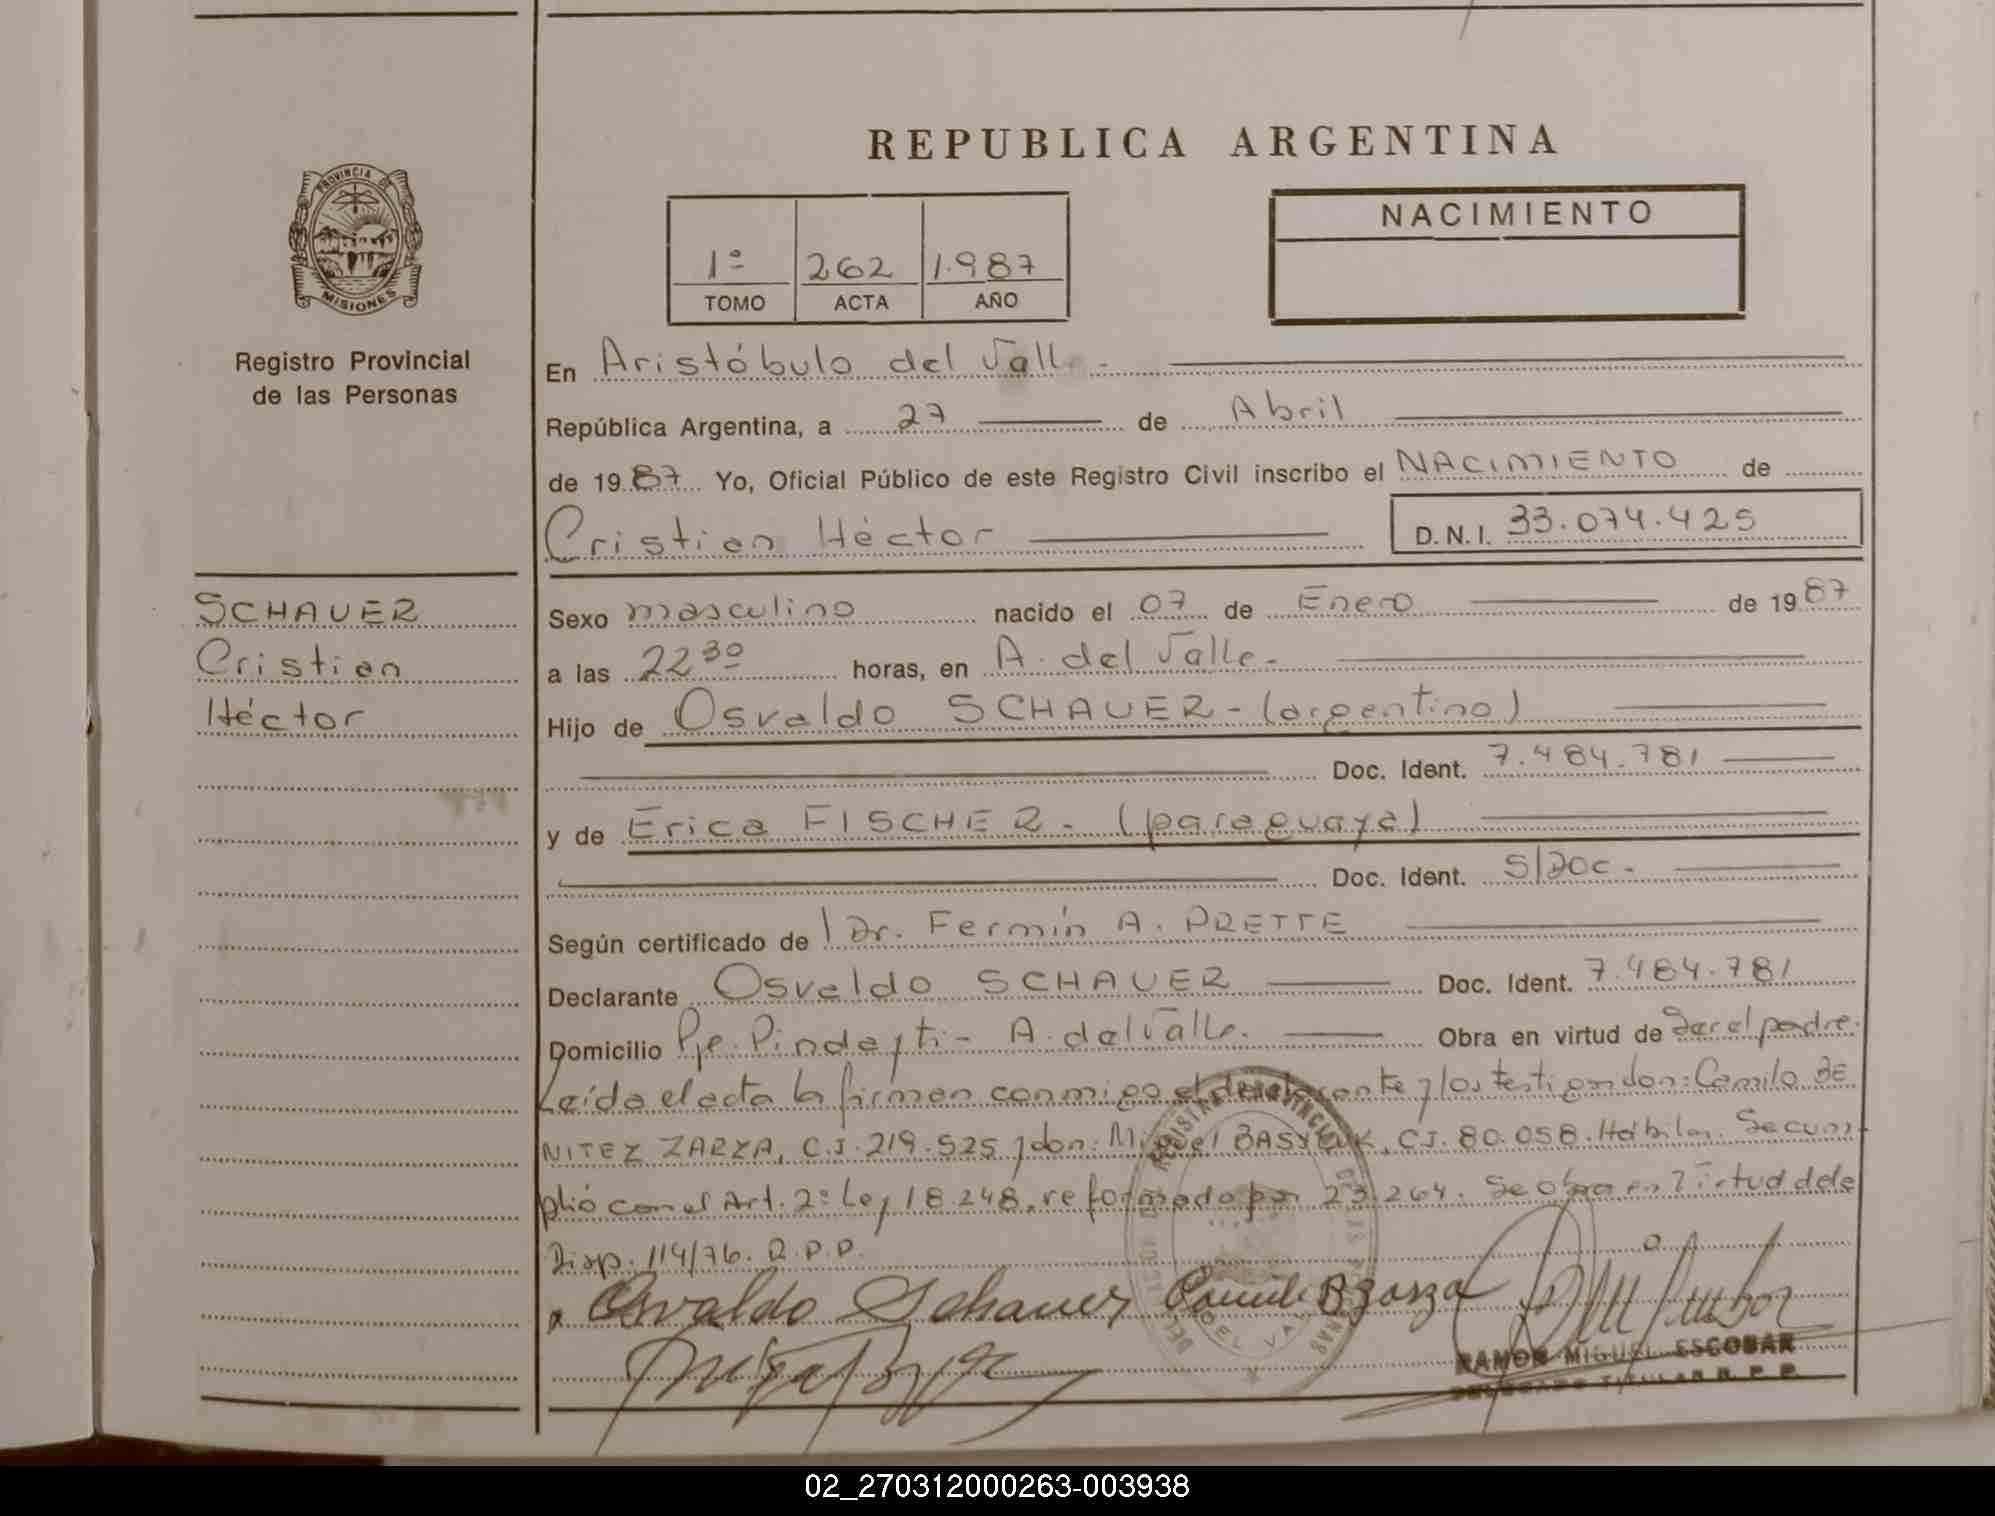 REPUBLICA ARGENTINA
PROVINCIA DE
MISIONES
Registro Provincial
de las Personas
1º 262 1.987
TOMO ACTA AÑO
NACIMIENTO
En Aristóbulo del Valle -
República Argentina, a 27 de Abril
de 1987 Yo, Oficial Público de este Registro Civil inscribo el NACIMIENTO de
Cristian Héctor D.N.I. 33.074.425
SCHAUER
Cristian
Héctor
Sexo masculino nacido el 07 de Enero de 1987
a las 22 30 horas, en A. del Valle -
Hijo de Osvaldo SCHAUER - (argentino)
Doc. Ident. 7.484.781
y de Erica FISCHER - (paraguaya)
Doc. Ident. S/Doc.
Según certificado de Dr. Fermín A. PRETTE
Declarante Osvaldo SCHAUER Doc. Ident. 7.484.781
Domicilio Pje. Pindayti - A. del Valle. Obra en virtud de Ser el padre.
Leída el acta la firman conmigo el declarante y los testigos don: Camilo BE
NITEZ ZARZA, C.I. 219.525 y don: Miguel BASYLUK, C.I. 80.058. Hábiles. Se cum
plió con el Art. 2º Ley 18.248, reformado por 23.264. Se obra en virtud de la
Disp. 114/76. R.P.P.
Osvaldo Schauer Camilo B Zarza
RAMON MIGUEL ESCOBAR
DELEGADO TITULAR R. P. P.
02_270312000263-003938